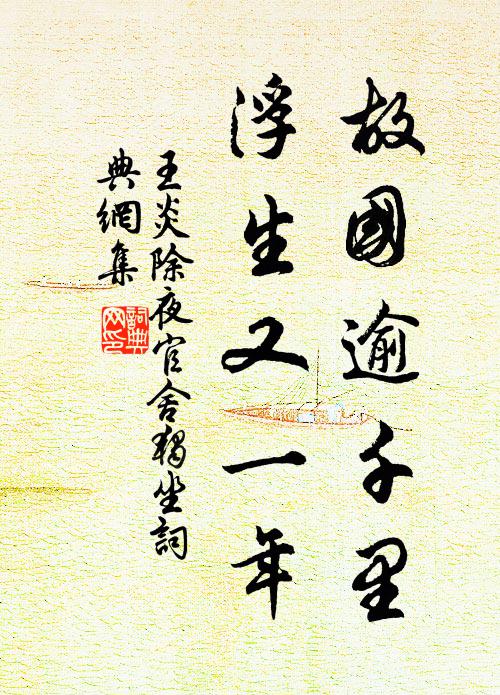 故國逾千里
浮生又一年
王炎除夜官舍獨坐詞
典網集
詞典
网印